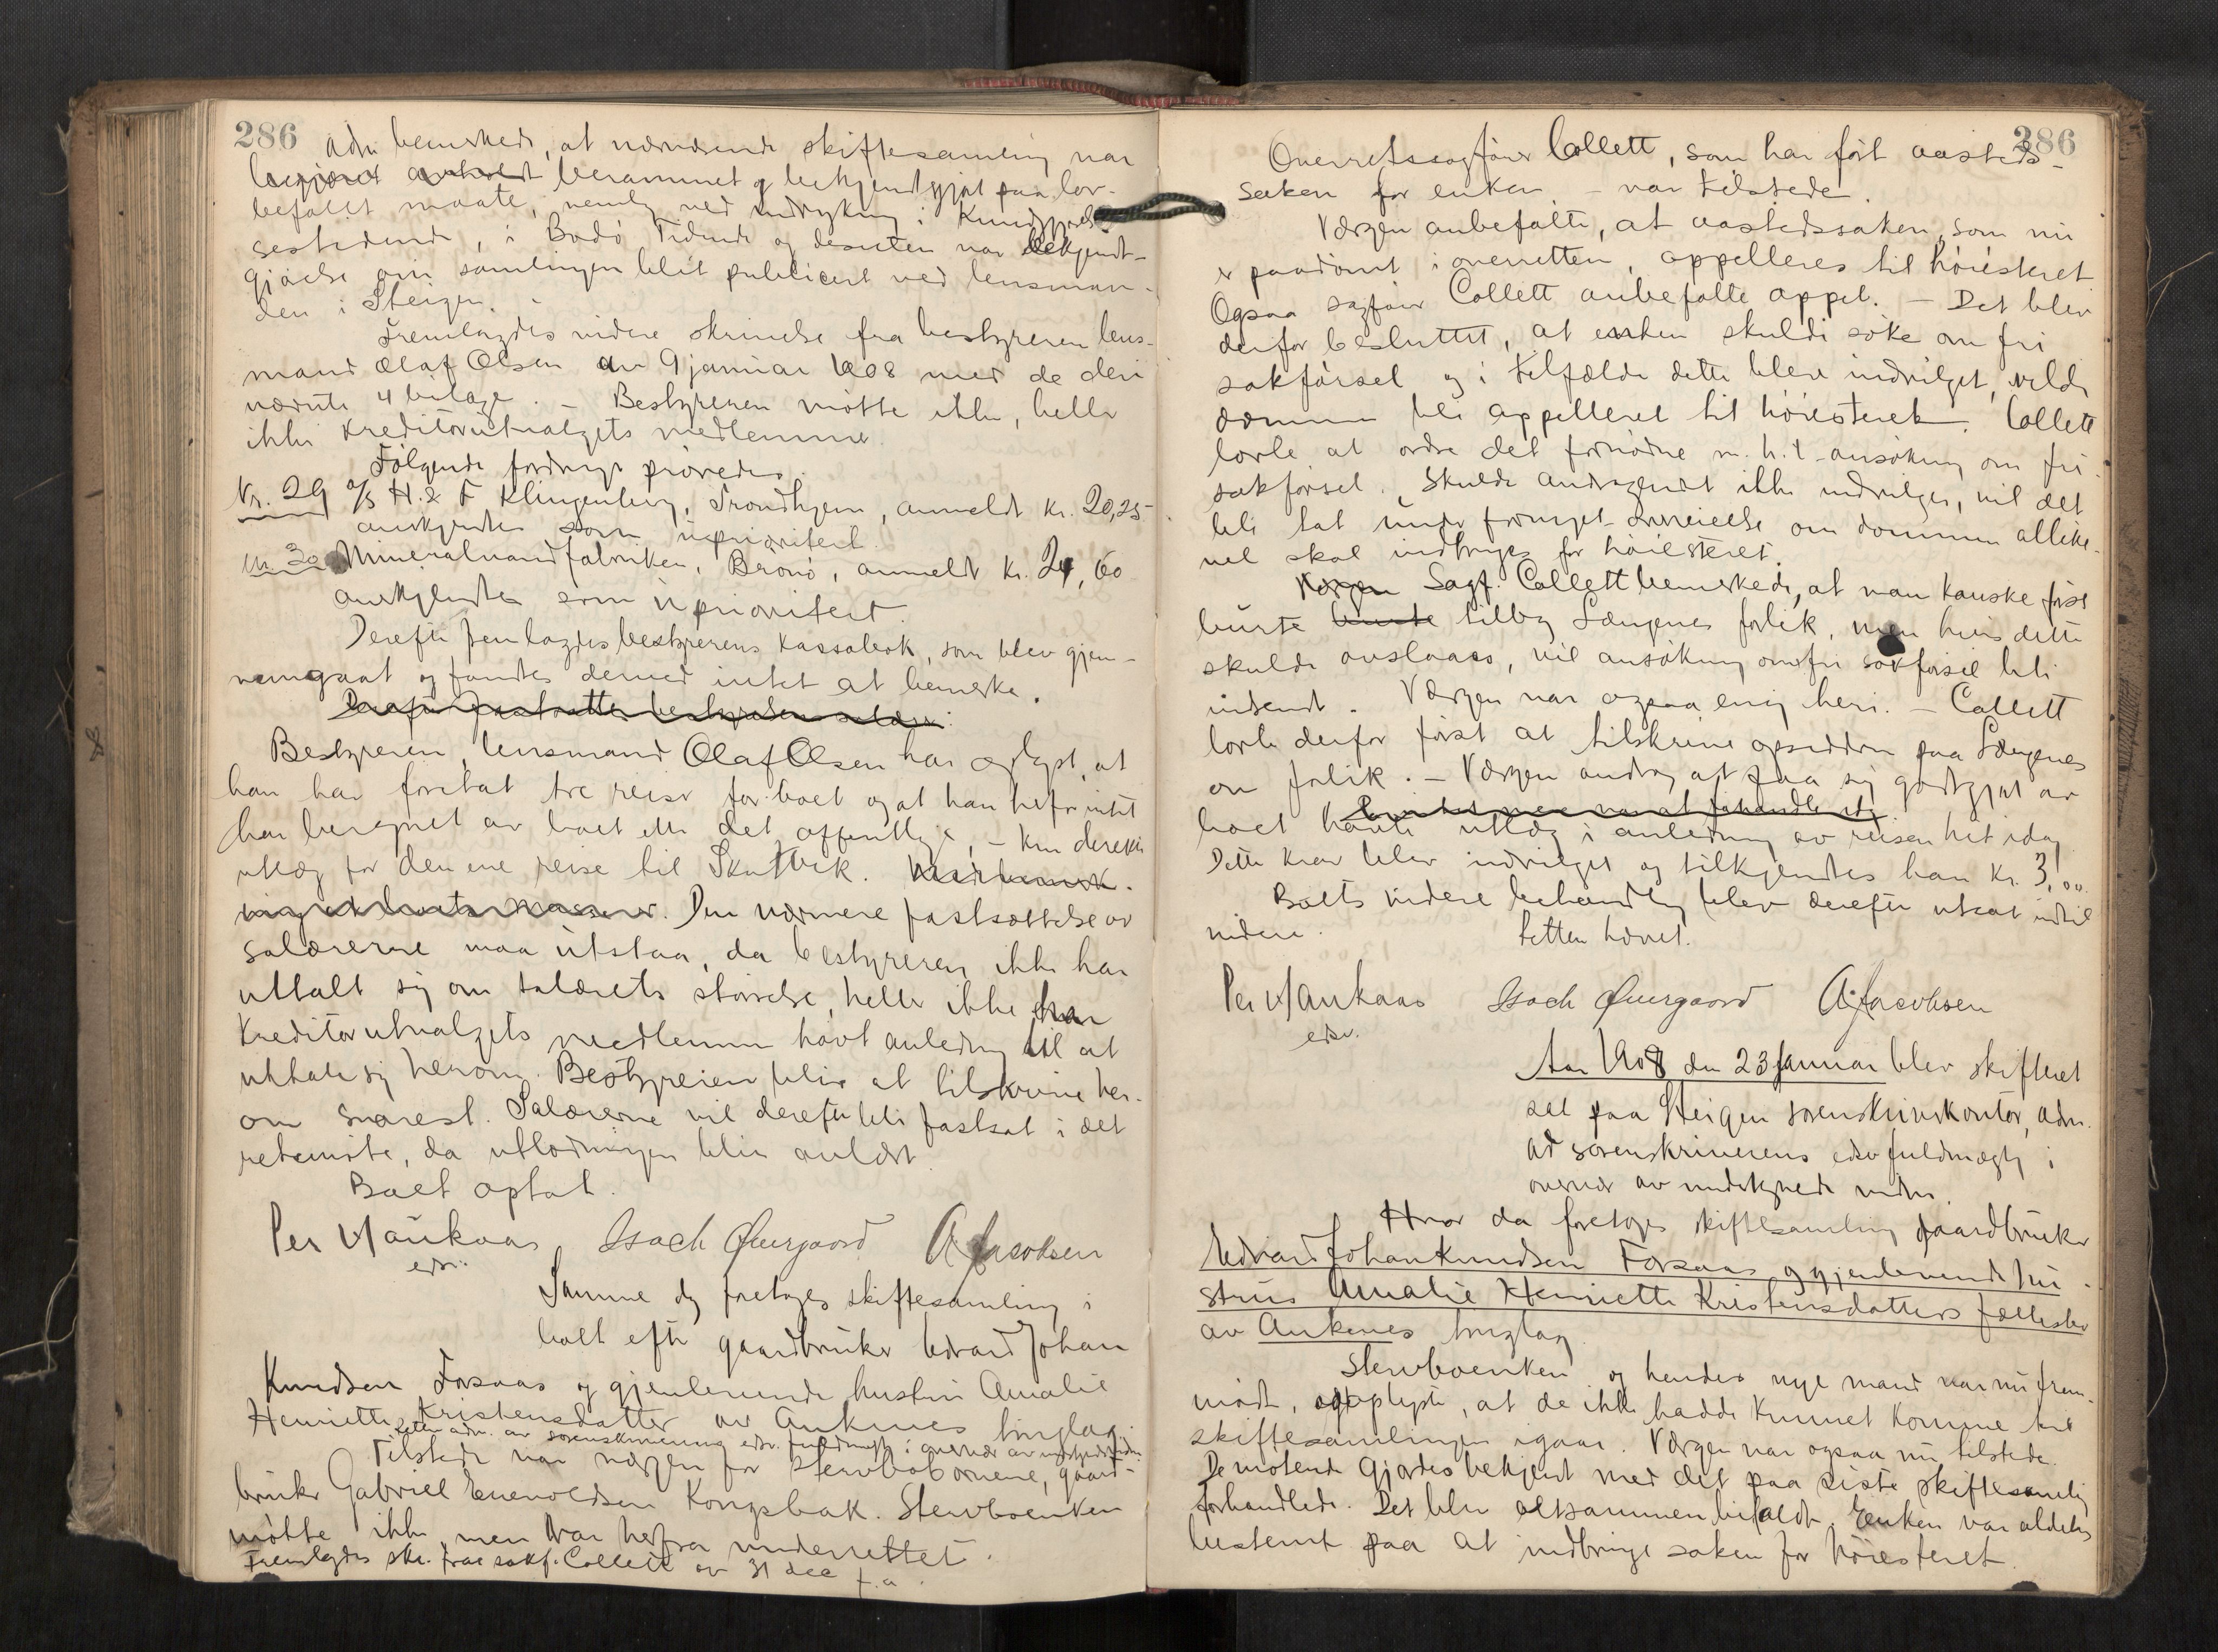 286
Adm bemerkede, at nærværende skiftesamling var
berammet og bekjendtgjort paa lov-
befalet maate, nemlig ved indrykning i Kundgjørel-
sestidende, i Bodö Tidende og desuten var bekjendt-
gjörelse om samlingen blit publicert ved lensman-
den i Steigen. -
Fremlagdes videre skrivelse fra bestyreren lens-
mand Olaf Olsen av 9 januar 1908 med de deri
nævnte 4 bilage. - Bestyreren mötte ikke, heller
ikke kreditorutvalgets medlemmer.
Fölgende fordringer prövedes:
Nr. 29 A/S H. & F Klingenberg, Trondhjem, anmeldt kr. 20,25
anerkjendtes som uprioritert.
Nr. 30 Mineralvandfabriken, Brönö, anmeldt kr. 24,60
anerkjendtes som uprioritert.
Derefter fremlagdes bestyrerens kassabok, som blev gjen-
nemgaat og fandtes derved intet at bemerke.
Derefter fastsattes bestyrelsens salær
Bestyreren, lensmand Olaf Olsen har oplyst, at
han har foretat tre reiser for boet og at han herfor intet
har beregnet av boet eller det offentlige, - kun direkte
utlæg for den ene reise til Skutvik.
Den nærmere fastsættelse av
salærerne maa utstaa, da bestyreren ikke har
uttalt sig om salærets störrelse, heller ikke har
Kreditorutvalgets medlemmer havt anledning til at
uttale sig herom. Bestyreren blir at tilskrive her-
om snarest. Salærerne vil derefter bli fastsat i det
retsmöte, da utlodningen blir avsluttet.
Boet optat.
Per Maukaas Isach Overgaard A Jacobsen
edsv.
Samme dag foretoges skiftesamling i
boet efter gaardbruker Edvard Johan
Knudsen Forsaas og gjenlevende hustru Amalie
Henriette Kristensdatter av Ankenes tinglag.
Retten adm. av sorenskriverens edsv. fuldmægtig i overvær av undertegnede vidner.
Tilstede var værgen for stervbobörnene, gaard-
bruker Gabriel Enevoldsen Kongsbak. Stervboenken
mötte ikke, men var herfra underrettet.
Fremlagdes skr. fra sakf. Collett av 31 dec f.a.
286
Overretssagförer Collett, som har fört aasteds-
saken for enken - var tilstede.
Værgen anbefalte, at aastedssaken, som nu
er paadömt i overretten, appelleres til höiesteret
Ogsaa sagförer Collett anbefalte appel. - Det blev
derfor besluttet, at enken skulde söke om fri
sakförsel og i tilfælde dette blev indvilget, vilde
dommen bli appelleret til höiesteret. Collett
lovte at ordne det fornödne m. h. t. ansökning om fri
sakförsel. Skulde andragendet ikke indvilges, vil det
bli tat under fornyet overveielse om dommen allike-
vel skal indbringes for höiesteret.
Værgen Sagf. Collett bemerkede, at man kanske först
burte burte tilby Længenes forlik, men hvis dette
skulde avslaaes, vil ansökning om fri sakförsel bli
indsendt. Værgen var ogsaa enig heri. - Collett
lovte derfor först at tilskrive opsidderne paa Længenes
om forlik. - Værgen androg at faa sig godtgjort av
Da intet mere var at forhandle ut
boet havte utlæg i anledning av reisen hit idag.
Dette krav blev indvilget og tilkjendtes han kr. 3,00.
Boets videre behandling blev derefter utsat indtil
videre. Retten hævet.
Per Maukaas Isach Overgaard A. Jacobsen
edsv.
Aar 1908 den 23 januar blev skifteret
sat paa Steigen sorenskriverkontor, adm.
av sorenskriverens edsv fuldmægtig i
overvær av undertegnede vidner.
Hvor da foretoges skiftesamling gaardbruker
Edvard Johan Knudsen Forsaas og gjenlevende hu-
strus Amalie Henriette Kristensdatters fællesbo
av Ankenes tinglag.
Stervboenken og hendes nye mand var nu frem-
mödt, og oplyste, at de ikke hadde kunnet komme til
skiftesamlingen igaar. Værgen var ogsaa nu tilstede.
De mötende gjordes bekjent med det paa siste skiftesamling
forhandlede. Det blev altsammen bifaldt. Enken var aldeles
bestemt paa at indbringe saken for höiesteret.